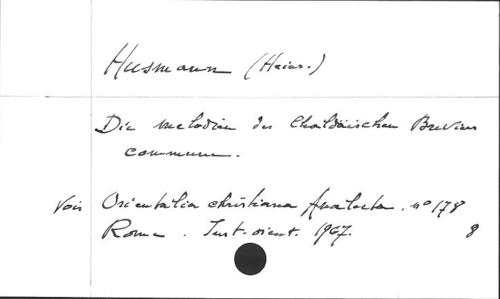 Husmann (Heinr.)
Die Melodien des Chaldäischen Breviers
commune.
Voir Orientalia christiana Analecta. n° 178
Roma. Inst. orient. 1967. 8